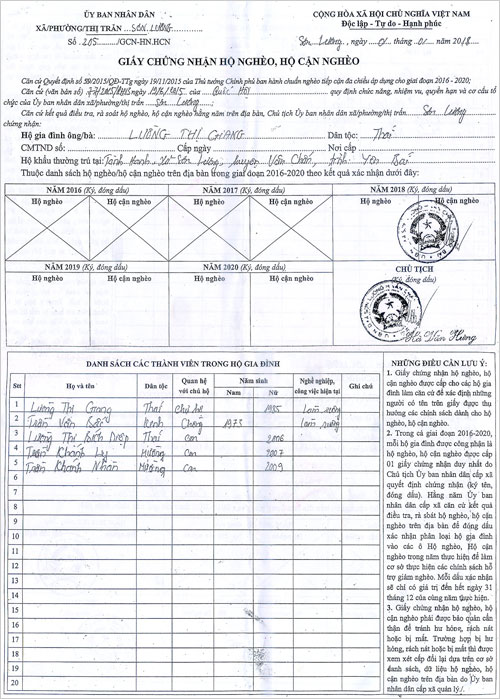 ỦY BAN NHÂN DÂN
XÃ/PHƯỜNG/THỊ TRẤN SƠN LƯƠNG
Số 215 /GCN-HN.HCN
CỘNG HÒA XÃ HỘI CHỦ NGHĨA VIỆT NAM
Độc lập - Tự do - Hạnh phúc
Sơn Lương, ngày 01 tháng 01 năm 2018
GIẤY CHỨNG NHẬN HỘ NGHÈO, HỘ CẬN NGHÈO
Căn cứ Quyết định số 59/2015/QĐ-TTg ngày 19/11/2015 của Thủ tướng Chính phủ ban hành chuẩn nghèo tiếp cận đa chiều áp dụng cho giai đoạn 2016 - 2020;
Căn cứ (văn bản số) 77/2015/QH13 ngày 19/6/2015 của Quốc Hội quy định chức năng, nhiệm vụ, quyền hạn và cơ cấu tổ
chức của Ủy ban nhân dân xã/phường/thị trấn Sơn Lương;
Căn cứ kết quả điều tra, rà soát hộ nghèo, hộ cận nghèo hằng năm trên địa bàn, Chủ tịch Ủy ban nhân dân xã/phường/thị trấn Sơn Lương
chứng nhận:
Hộ gia đình ông/bà: LƯỜNG THỊ GIANG Dân tộc: Thái
CMTND số: Cấp ngày Nơi cấp
Hộ khẩu thường trú tại: Xã Sơn Lương, huyện Văn Chấn, tỉnh Yên Bái
Thuộc danh sách hộ nghèo/hộ cận nghèo trên địa bàn trong giai đoạn 2016-2020 theo kết quả xác nhận dưới đây:
NĂM 2016 (Ký, đóng dấu) NĂM 2017 (Ký, đóng dấu) NĂM 2018 (Ký, đóng dấu)
Hộ nghèo Hộ cận nghèo Hộ nghèo Hộ cận nghèo Hộ nghèo Hộ cận nghèo
NĂM 2019 (Ký, đóng dấu) NĂM 2020 (Ký, đóng dấu) CHỦ TỊCH
Hộ nghèo Hộ cận nghèo Hộ nghèo Hộ cận nghèo (Ký, đóng dấu)
Hà Văn Hưng
DANH SÁCH CÁC THÀNH VIÊN TRONG HỘ GIA ĐÌNH
Stt Họ và tên Dân tộc Quan hệ với chủ hộ Năm sinh Nam Nữ Nghề nghiệp, công việc hiện tại Ghi chú
1 Lường Thị Giang Thái Chủ hộ 1985 làm ruộng
2 Trần Văn Kinh Chồng 1973 làm ruộng
3 Lường Thị Diệp Thái Con 2006
4 Trần Khánh Ly Mường Con 2007
5 Trần Khánh Nhân Mường Con 2009
6
7
8
9
10
11
12
13
14
15
16
17
18
19
20
NHỮNG ĐIỀU CẦN LƯU Ý:
1. Giấy chứng nhận hộ nghèo, hộ
cận nghèo được cấp cho các hộ gia
đình làm căn cứ để xác định những
người có tên trên giấy được thụ
hưởng các chính sách dành cho hộ
nghèo, hộ cận nghèo.
2. Trong cả giai đoạn 2016-2020,
mỗi hộ gia đình được công nhận là
hộ nghèo, hộ cận nghèo được cấp
01 giấy chứng nhận duy nhất do
Chủ tịch Ủy ban nhân dân cấp xã
quyết định chứng nhận (ký tên,
đóng dấu). Hằng năm Ủy ban
nhân dân cấp xã căn cứ kết quả
điều tra, rà soát hộ nghèo, hộ cận
nghèo trên địa bàn để đóng dấu
xác nhận phân loại hộ gia đình
vào các ô Hộ nghèo, Hộ cận
nghèo trong năm thực hiện để làm
cơ sở thực hiện các chính sách hỗ
trợ giảm nghèo. Mỗi dấu xác nhận
sẽ chỉ có giá trị đến hết ngày 31
tháng 12 của cùng năm thực hiện.
3. Giấy chứng nhận hộ nghèo, hộ
cận nghèo phải được bảo quản cẩn
thận để tránh hư hỏng, rách nát
hoặc bị mất. Trường hợp bị hư
hỏng, rách nát hoặc bị mất thì được
xem xét cấp đổi lại dựa trên cơ sở
danh sách, dữ liệu hộ nghèo, hộ
cận nghèo trên địa bàn do Ủy ban
nhân dân cấp xã quản lý.